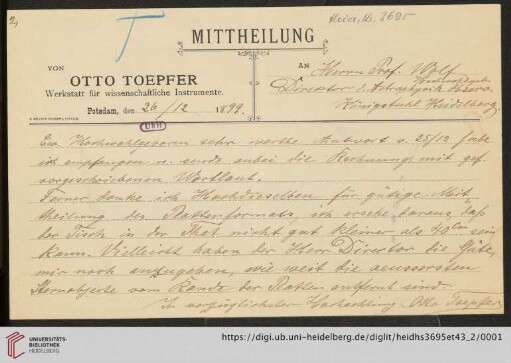 2,
Heid. Hs. 3695
MITTHEILUNG
VON
OTTO TOEPFER
Werkstatt für wissenschaftliche Instrumente.
Potsdam, den 26/12 1899.
AN
Herrn Prof. Wolf
Direktor d. Astrophysik. Observ.
Königstuhl Heidelberg.
UBH
Ew. Hochwohlgeboren sehr werthe Antwort v. 25/12 habe
ich empfangen u. sende anbei die Rechnung mit gef.
vorgeschriebenen Wortlaut.
Ferner danke ich Hochdieselben für gütige Mit-
theilung des Plattenformats, ich ersehe daraus, daß
der Tisch in der That nicht gut kleiner als 40 cm sein
kann. Vielleicht haben der Herr Direktor die Güte,
mir noch anzugeben, wie weit die aeussersten
Sternobjecte vom Rande der Platten entfernt sind.
In vorzüglichster Hochachtung Otto Toepfer
UNIVERSITÄTS-
BIBLIOTHEK
HEIDELBERG
https://digi.ub.uni-heidelberg.de/diglit/heidhs3695et43_2/0001